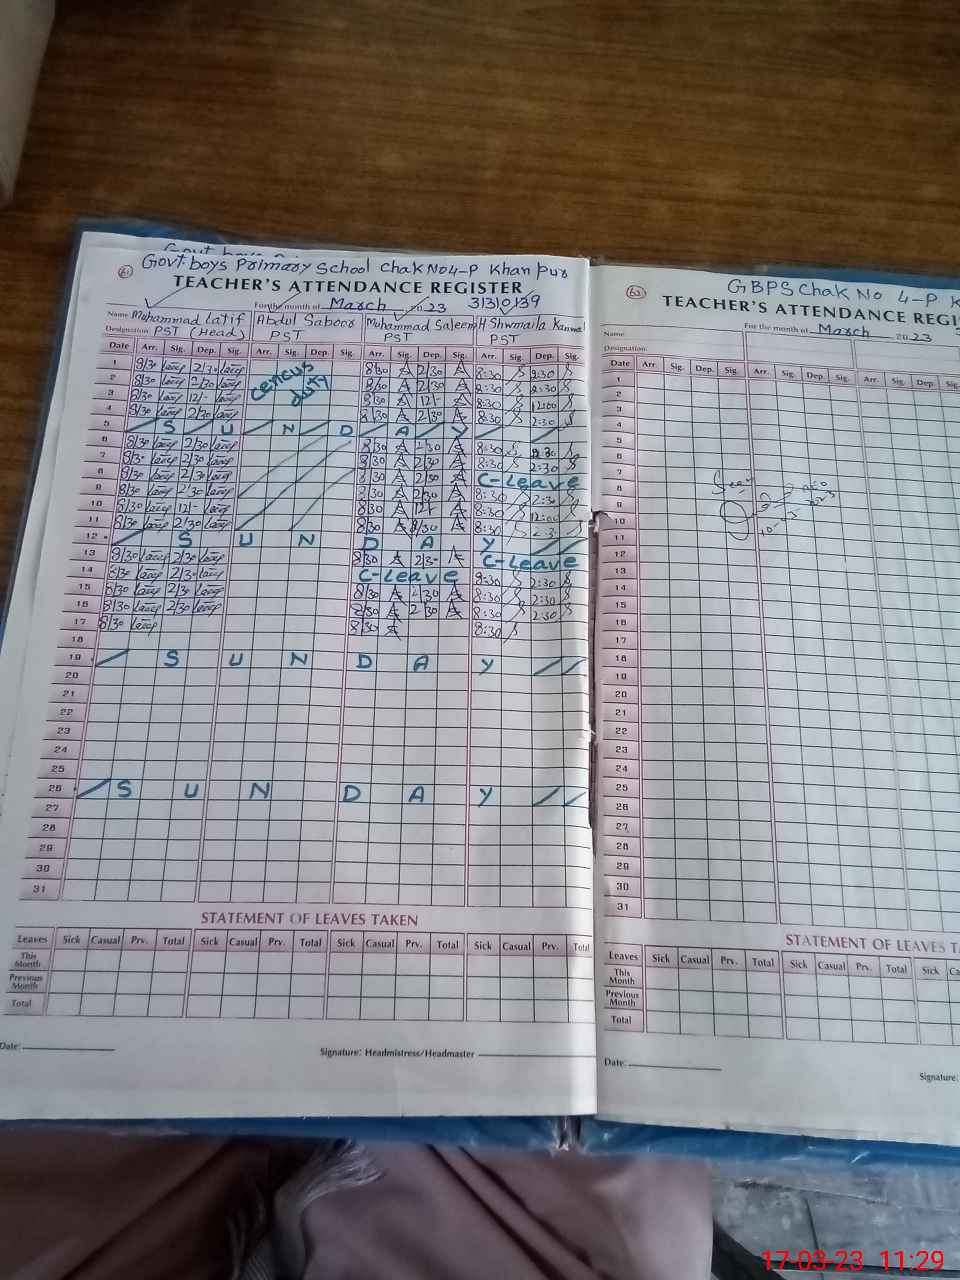 Govt. boys Primary School Chak No 4-P Khan pur
TEACHER'S ATTENDANCE REGISTER
For the month of March 2023 31310139
Name Muhammad Latif Abdul Saboor Muhammad Saleem
Designation PST (Head) PST PST PST
Date Arr. Sig. Dep. Sig. Arr. Sig. Dep. Sig. Arr. Sig. Dep. Sig. Arr. Sig. Dep. Sig.
1 8/30 2/30 8/30 2/30 8:30 2:30
2 8/30 2/30 8/30 2/30 8:30 2:30
3 8/30 12/- 8/30 12/- 8:30 12:00
4 8/30 2/30 8/30 2/30 8:30 2:30
Cencus duty
5 S U N D A Y
6 8/30 2/30 8/30 2/30 8:30 2:30
7 8/30 2/30 8/30 2/30 8:30 2:30
8 8/30 2/30 8/30 2/30 C-Leave
9 8/30 2/30 8/30 2/30 8:30 2:30
10 8/30 12/- 8/30 12/- 8:30 12:00
11 8/30 2/30 8/30 2/30 8:30 2:30
12 S U N D A Y
13 8/30 2/30 8/30 2/30 C-Leave
14 8/30 2/30 C-Leave 8:30 2:30
15 8/30 2/30 8/30 2/30 8:30 2:30
16 8/30 2/30 8/30 2/30 8:30 2:30
17 8/30 8/30 8:30
18
19 S U N D A Y
20
21
22
23
24
25
26 S U N D A Y
27
28
29
30
31
STATEMENT OF LEAVES TAKEN
Leaves Sick Casual Prv. Total Sick Casual Prv. Total Sick Casual Prv. Total Sick Casual Prv. Total
This Month
Previous Month
Total
Date:
Signature: Headmistress/Headmaster
GBPS Chak No 4-P K
TEACHER'S ATTENDANCE REGI
For the month of March 2023
Name
Designation
Date Arr. Sig. Dep. Sig. Arr. Sig. Dep. Sig. Arr. Sig.
1
2
3
4
5
6
7
8
9
10
11
12
13
14
15
16
17
18
19
20
21
22
23
24
25
26
27
28
29
30
31
STATEMENT OF LEAVES TA
Leaves Sick Casual Prv. Total Sick Casual Prv. Total Sick Ca
This Month
Previous Month
Total
Date:
Signature:
17-03-23 11:29